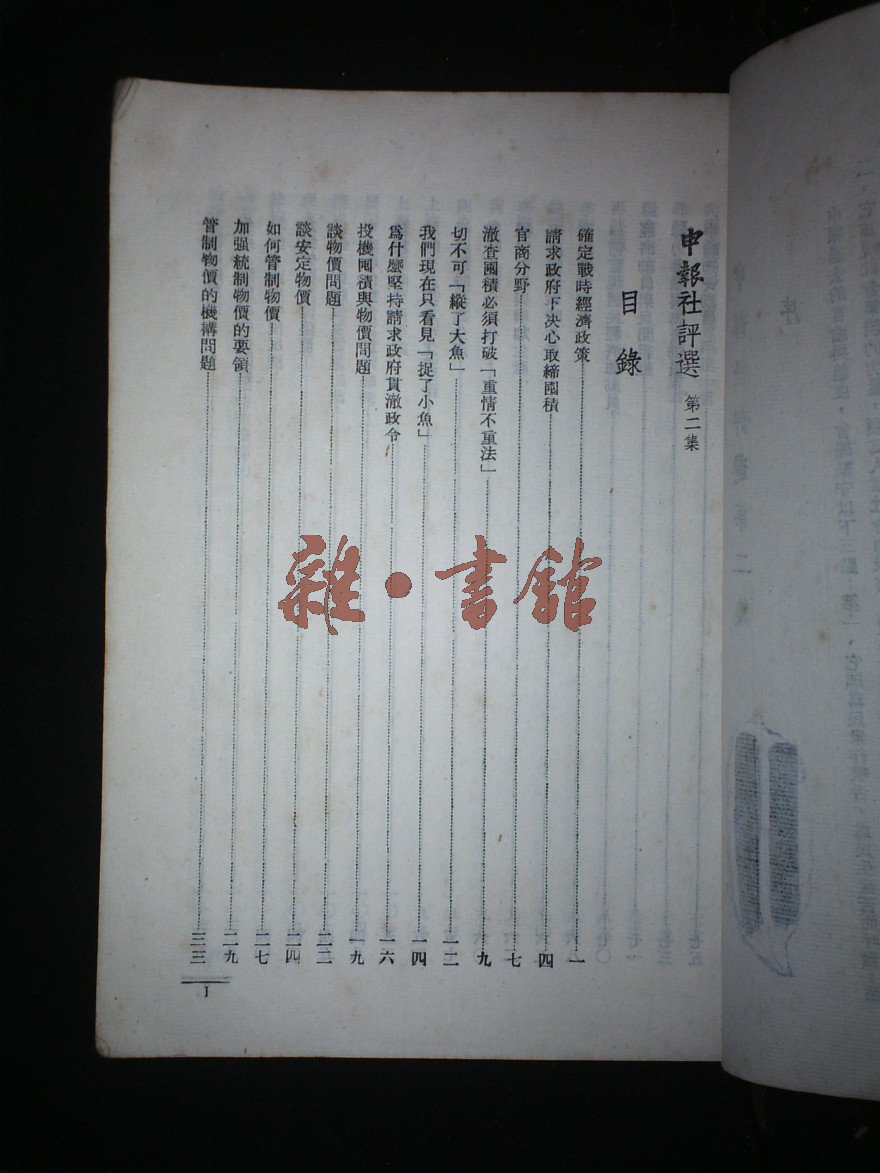 申報社評選 第二集
目錄
確定戰時經濟政策 一
請求政府下决心取締囤積 四
官商分野 七
澈查囤積必須打破「重情不重法」 九
切不可「縱了大魚」 一二
我們現在只看見「捉了小魚」 一四
爲什麼堅持請求政府貫澈政令 一六
投機囤積與物價問題 一九
談物價問題 二二
談安定物價 二四
如何管制物價 二七
加强統制物價的要領 二九
管制物價的機構問題 三三
1
雜·書館
序